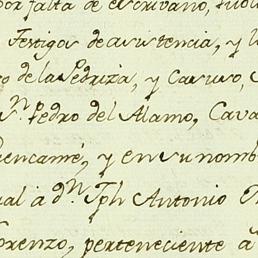 por falta de escrivano, 
Testigos de asistencia, y l
o de la Pedriza, y Caruso,
n. Pedro del Alamo, Cava
uencamé, y en su nomb
ual â dn. Jph Antonio
orenzo, perteneciente â